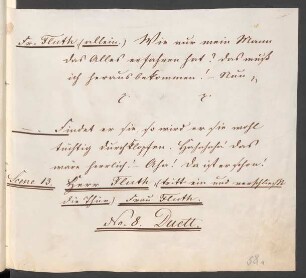 Fr. Fluth (allein.) Wie nur mein Mann
das Alles erfahren hat? Das muß
ich herausbekommen! Nun,
Findet er sie so wird er sie wohl
tüchtig durchklopfen. Hahaha! das
wäre herrlich! Aha! Da ist er schon!
Scene 13. Herr Fluth (tritt ein und verschließt
die Thür) Frau Fluth.
No. 8. Duett.
58.